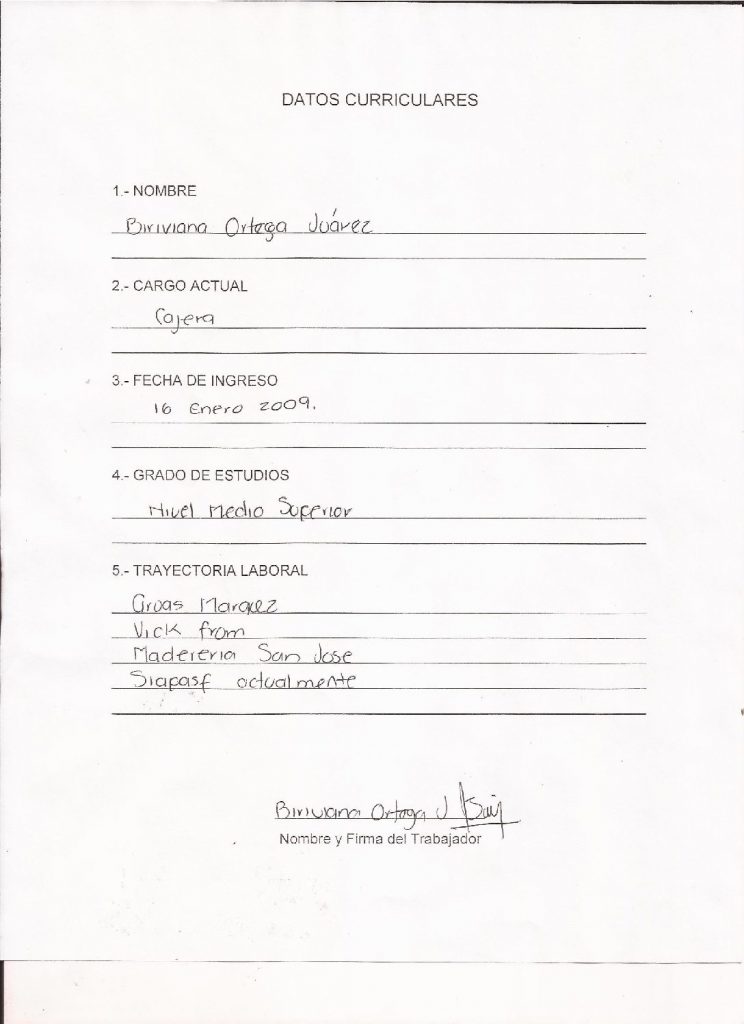 DATOS CURRICULARES
1.- NOMBRE
Biriviana Ortega Juárez
2.- CARGO ACTUAL
Cajera
3.- FECHA DE INGRESO
16 Enero 2009.
4.- GRADO DE ESTUDIOS
Nivel Medio Superior
5.- TRAYECTORIA LABORAL
Gruas Marquez
Vick from
Madereria San Jose
Siapasf actualmente
Biriviana Ortega J
Nombre y Firma del Trabajador